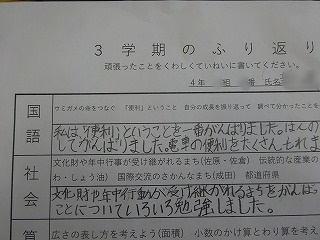 3 学期のふり返り
頑張ったことをくわしくていねいに書いてください。
4年 組 番 氏名
国語
ウミガメの命をつなぐ 「便利」ということ 自分の成長を振り返って 調べて分かったことを
私は「便利」ということを一番がんばりました。
してがんばりました。電車の便利をたくさん
社会
文化財や年中行事が受け継がれるまち(佐原・佐倉) 伝統的な産業の
わ・しょう油) 国際交流のさかんなまち(成田) 都道府県
文化財や年中行動が受け継がれるまちをがんば
ことについていろいろ勉強しました。
算
広さの表し方を考えよう(面積) 小数のかけ算とわり算を考え